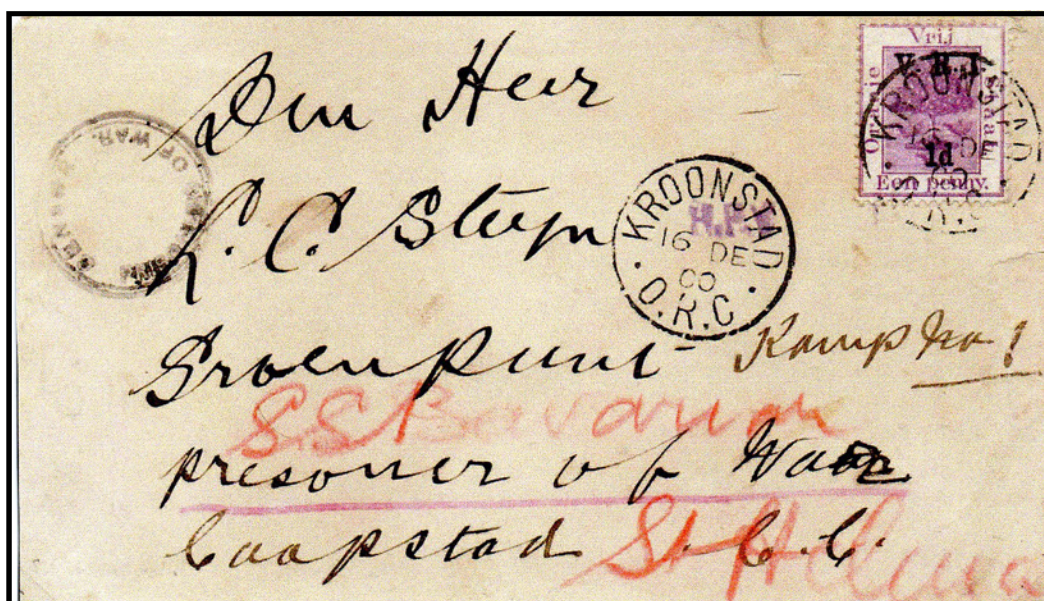 Vrij
V. R. I.
Oranje
Staat
1d
Een penny.
KROONSTAD
16 DE
00
O.R.C
Den Heer
L. C. Steyn
KROONSTAD
16 DE
00
O.R.C
OF WAR.
Groenpunt Kamp No 1
S.S Bavarian
presoner of Waar
Caapstad C. C.
St Helena